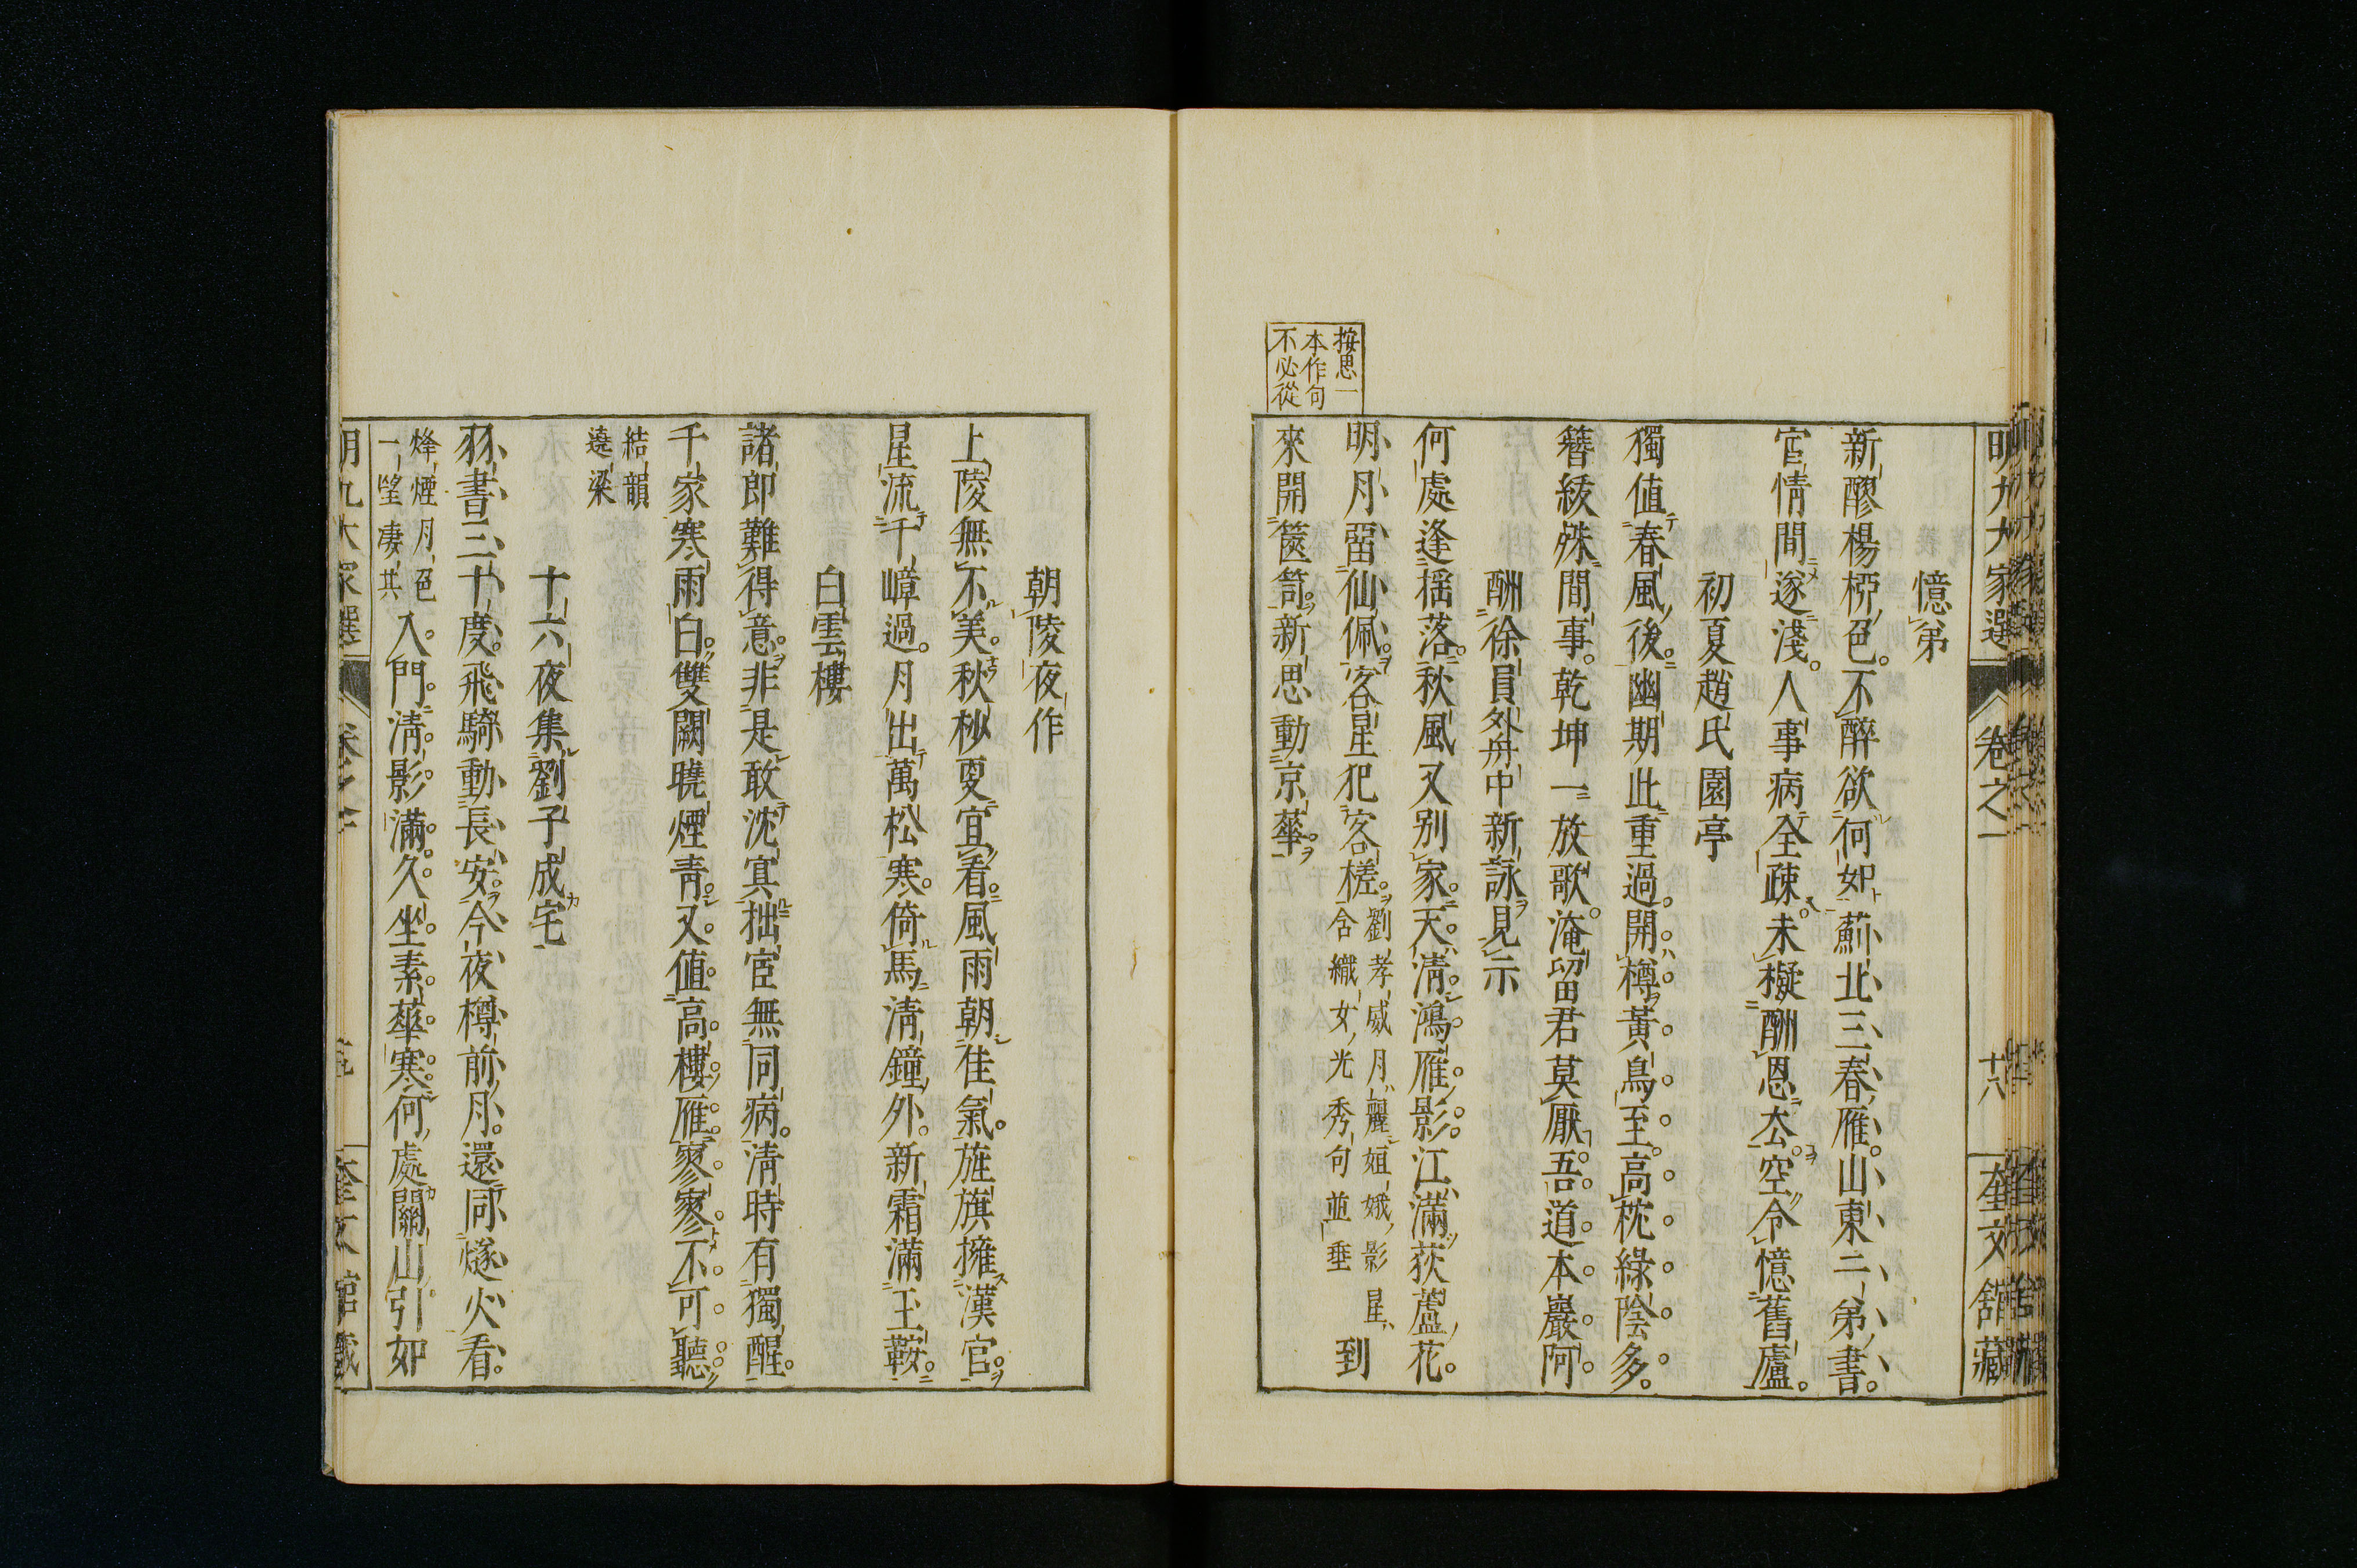 明九大家選 卷之一 十八 奎文館藏
憶弟
新醪楊桺色不醉欲何如薊北三春雁山東二弟書
宦情間遂淺人事病全疎未擬酬恩去空令憶舊廬
初夏趙氏園亭
獨值春風後幽期此重過開樽黃鳥至高枕綠陰多
簪紱殊間事乾坤一放歌淹留君莫厭吾道本巖阿
酬徐員外舟中新詠見示
何處逢揺落秋風又别家天清鴻雁影江滿荻蘆花
明月畱仙佩客星犯客槎
劉孝威月麗姮娥影星
含織女光秀句並垂
到
來開篋笥新思動京華
按思一
本作句
不必從
朝陵夜作
上陵無不美秋杪夏宜看風雨朝佳氣旌旗擁漢官
星流千嶂過月出萬松寒倚馬清鐘外新霜滿玉鞍
白雲樓
諸郎難得意非是敢沈冥拙宦無同病清時有獨醒
千家寒雨白雙闕曉煙青又值高樓雁寥寥不可聽
結韻
遶梁
十六夜集劉子成宅
羽書三十度飛騎動長安今夜樽前月還同燧火看
烽煙月色
一望凄其
入門清影滿久坐素華寒何處關山引如